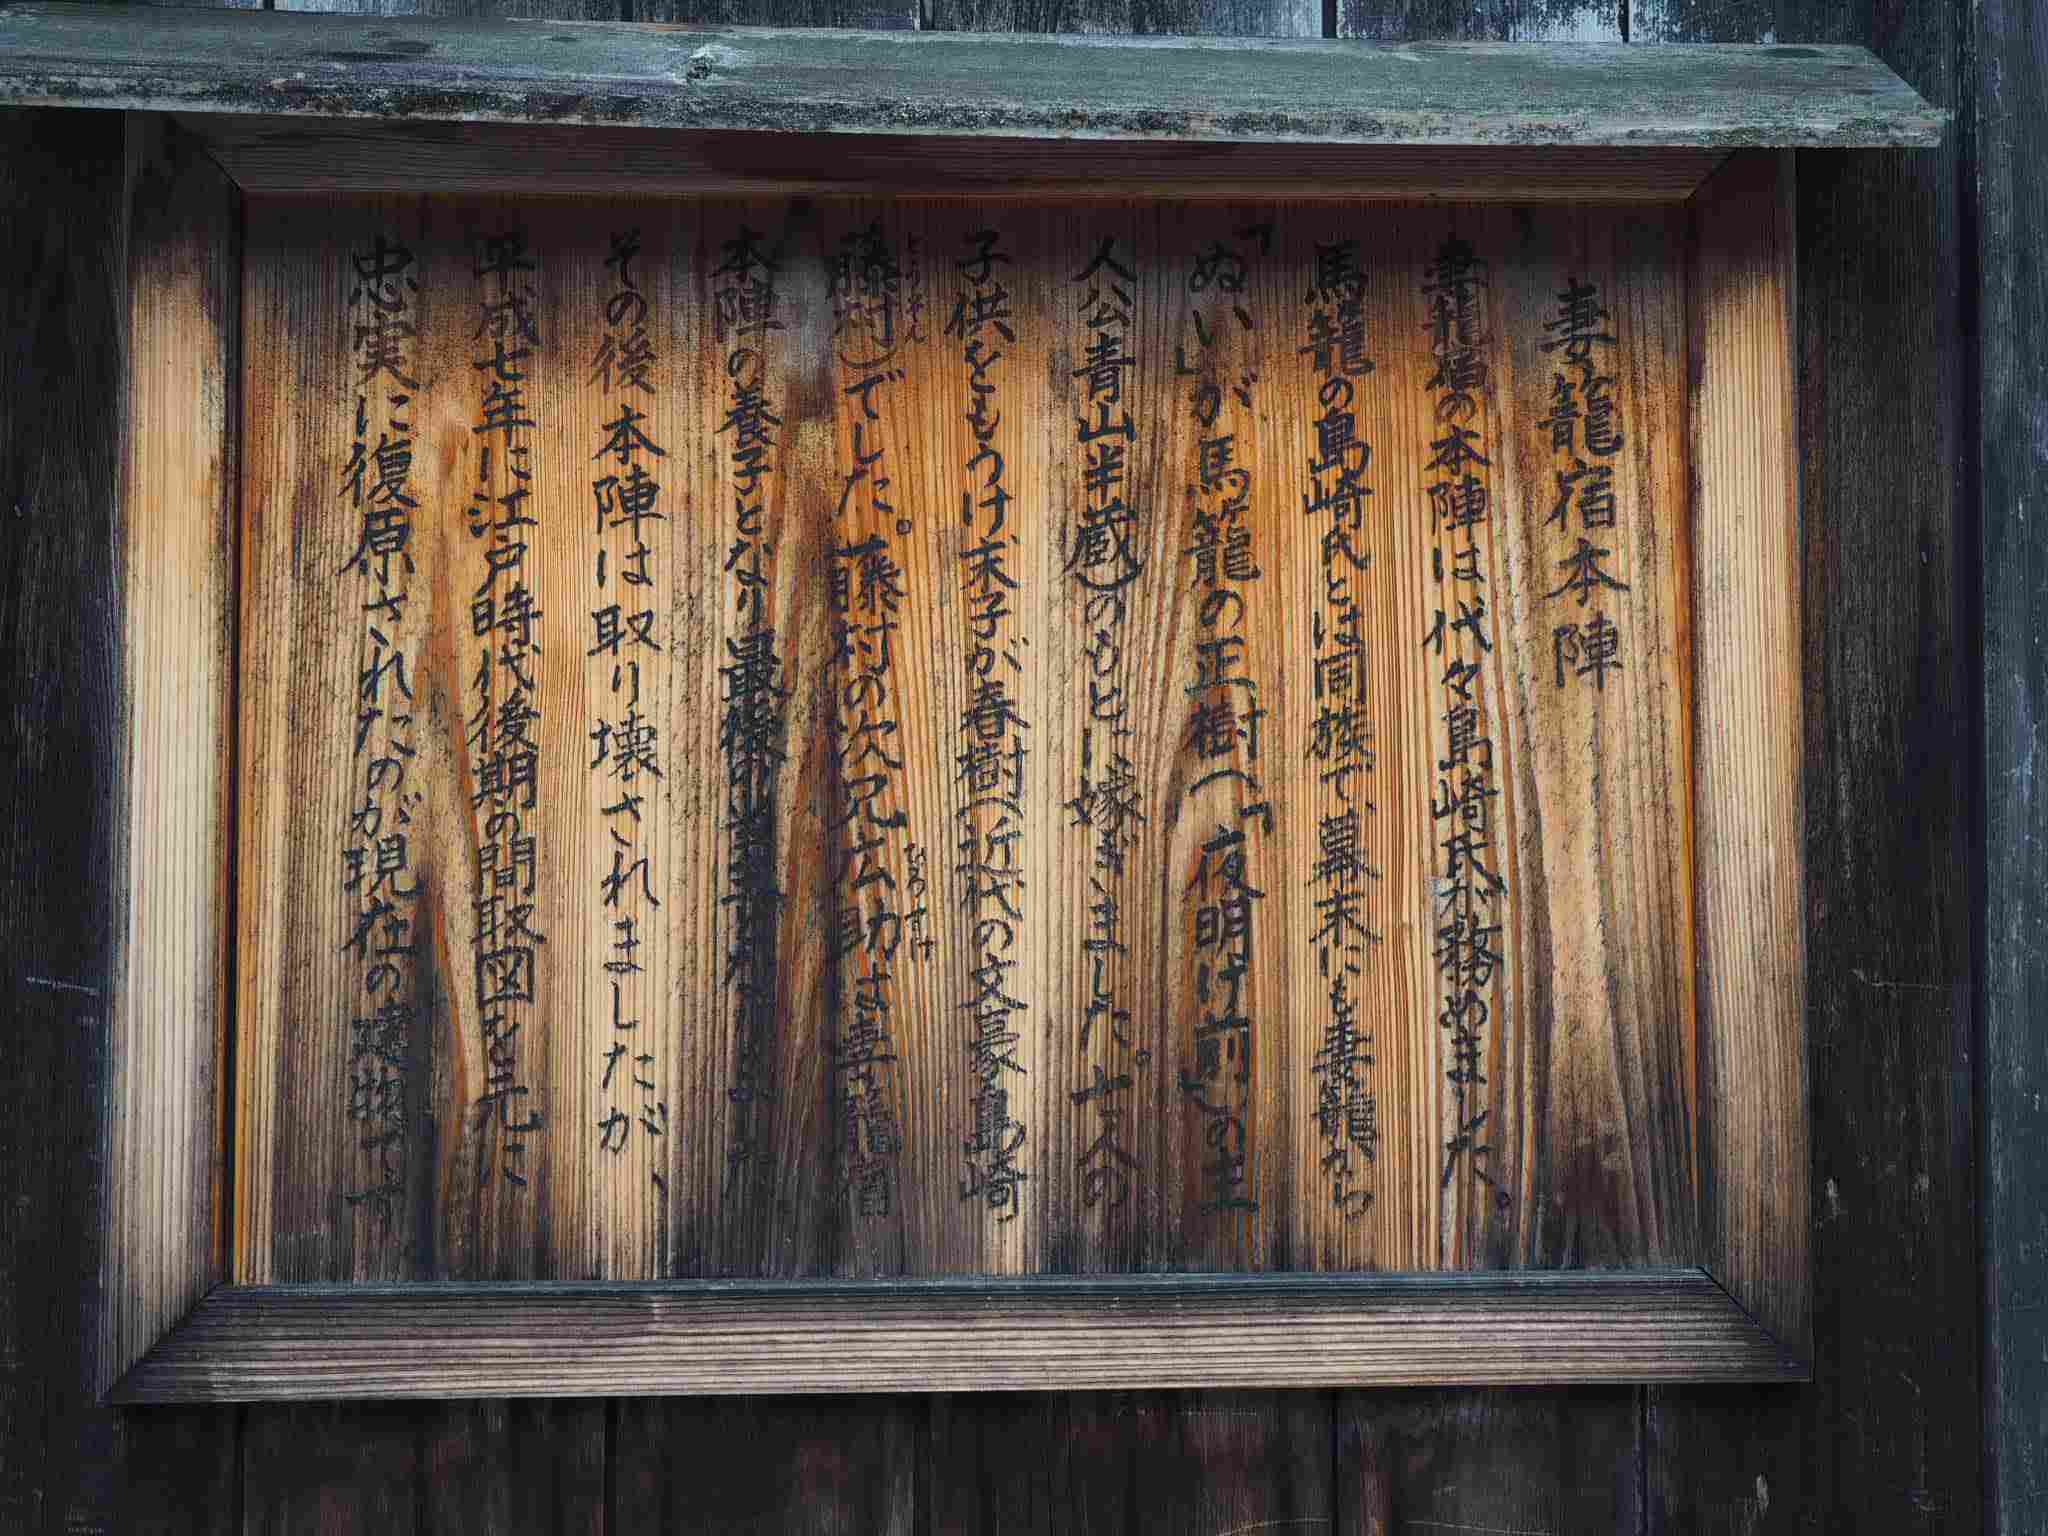 妻籠宿本陣
妻籠宿の本陣は代々島崎氏が務めました。
馬籠の島崎氏とは同族で、幕末にも妻籠から
「ぬい」が馬籠の正樹(「夜明け前」の主
人公青山半蔵)のもとに嫁ぎました。七人の
子供をもうけ末子が春樹(近代の文豪島崎
藤村)でした。藤村の次兄広助は妻籠宿
とうそん
ひろすけ
本陣の養子となり最後の
その後本陣は取り壊されましたが、
平成七年に江戸時代後期の間取図を元に
忠実に復原されたのが現在の建物です